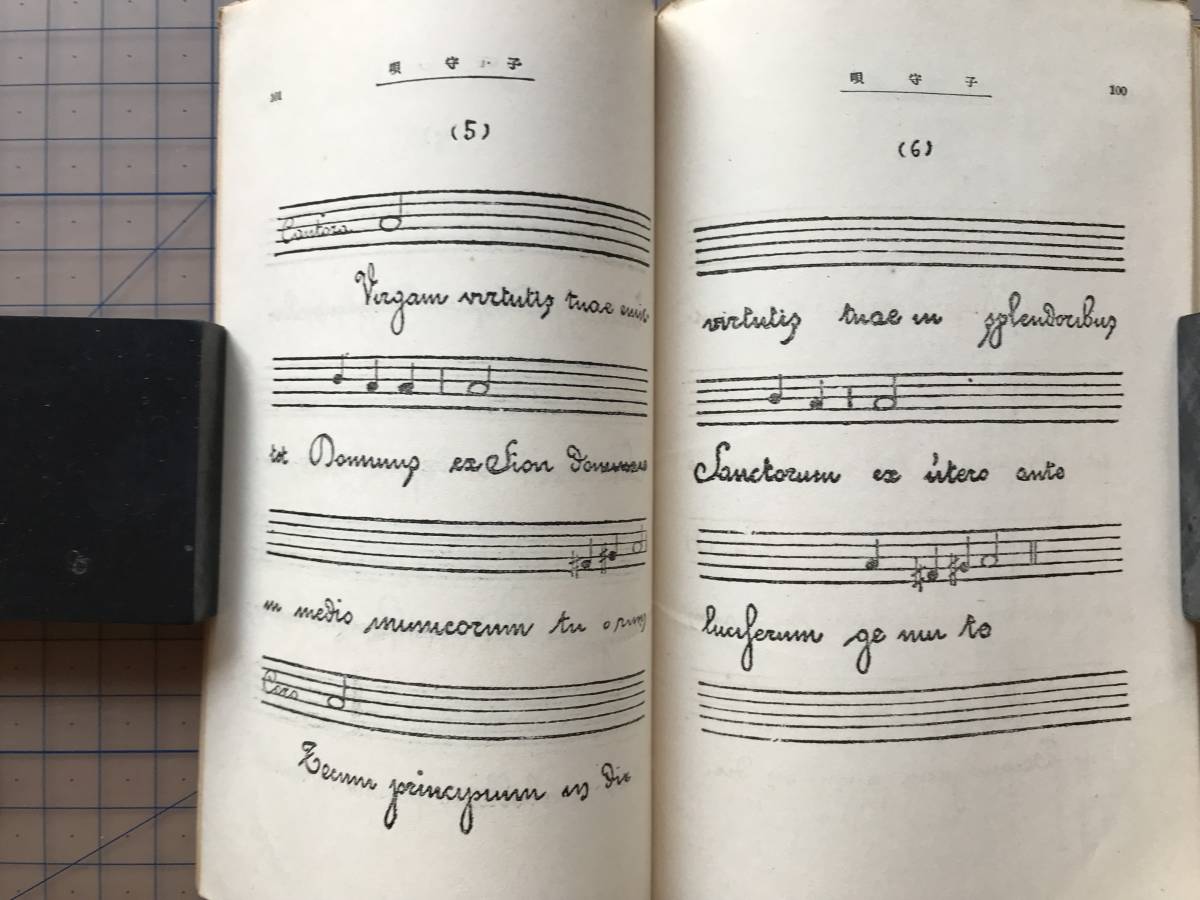 子守唄
101
(5)
Cantora
Virgam virtutis tuae emit
tet Dominus ex Sion
in medio inimicorum tu o rum
Coro
Tecum principium in die
子守唄
100
(6)
virtutis tuae in splendoribus
Sanctorum ex útero ante
luciferum ge nui te